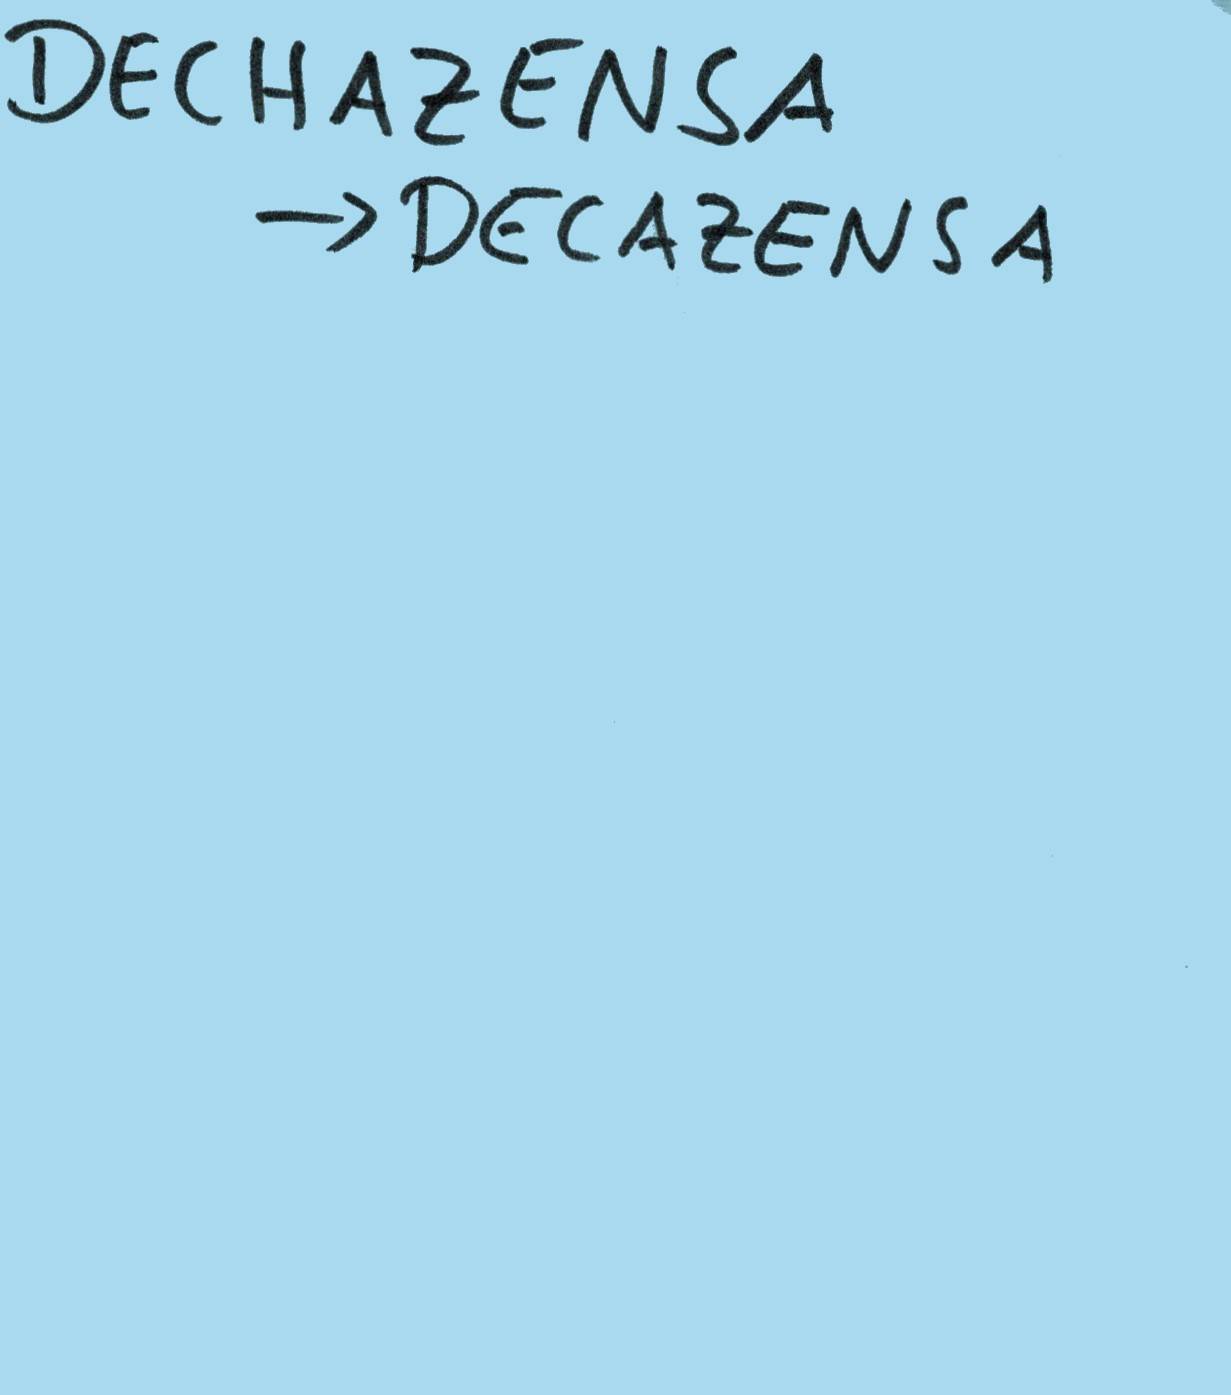 DECHAZENSA
→ DECAZENSA